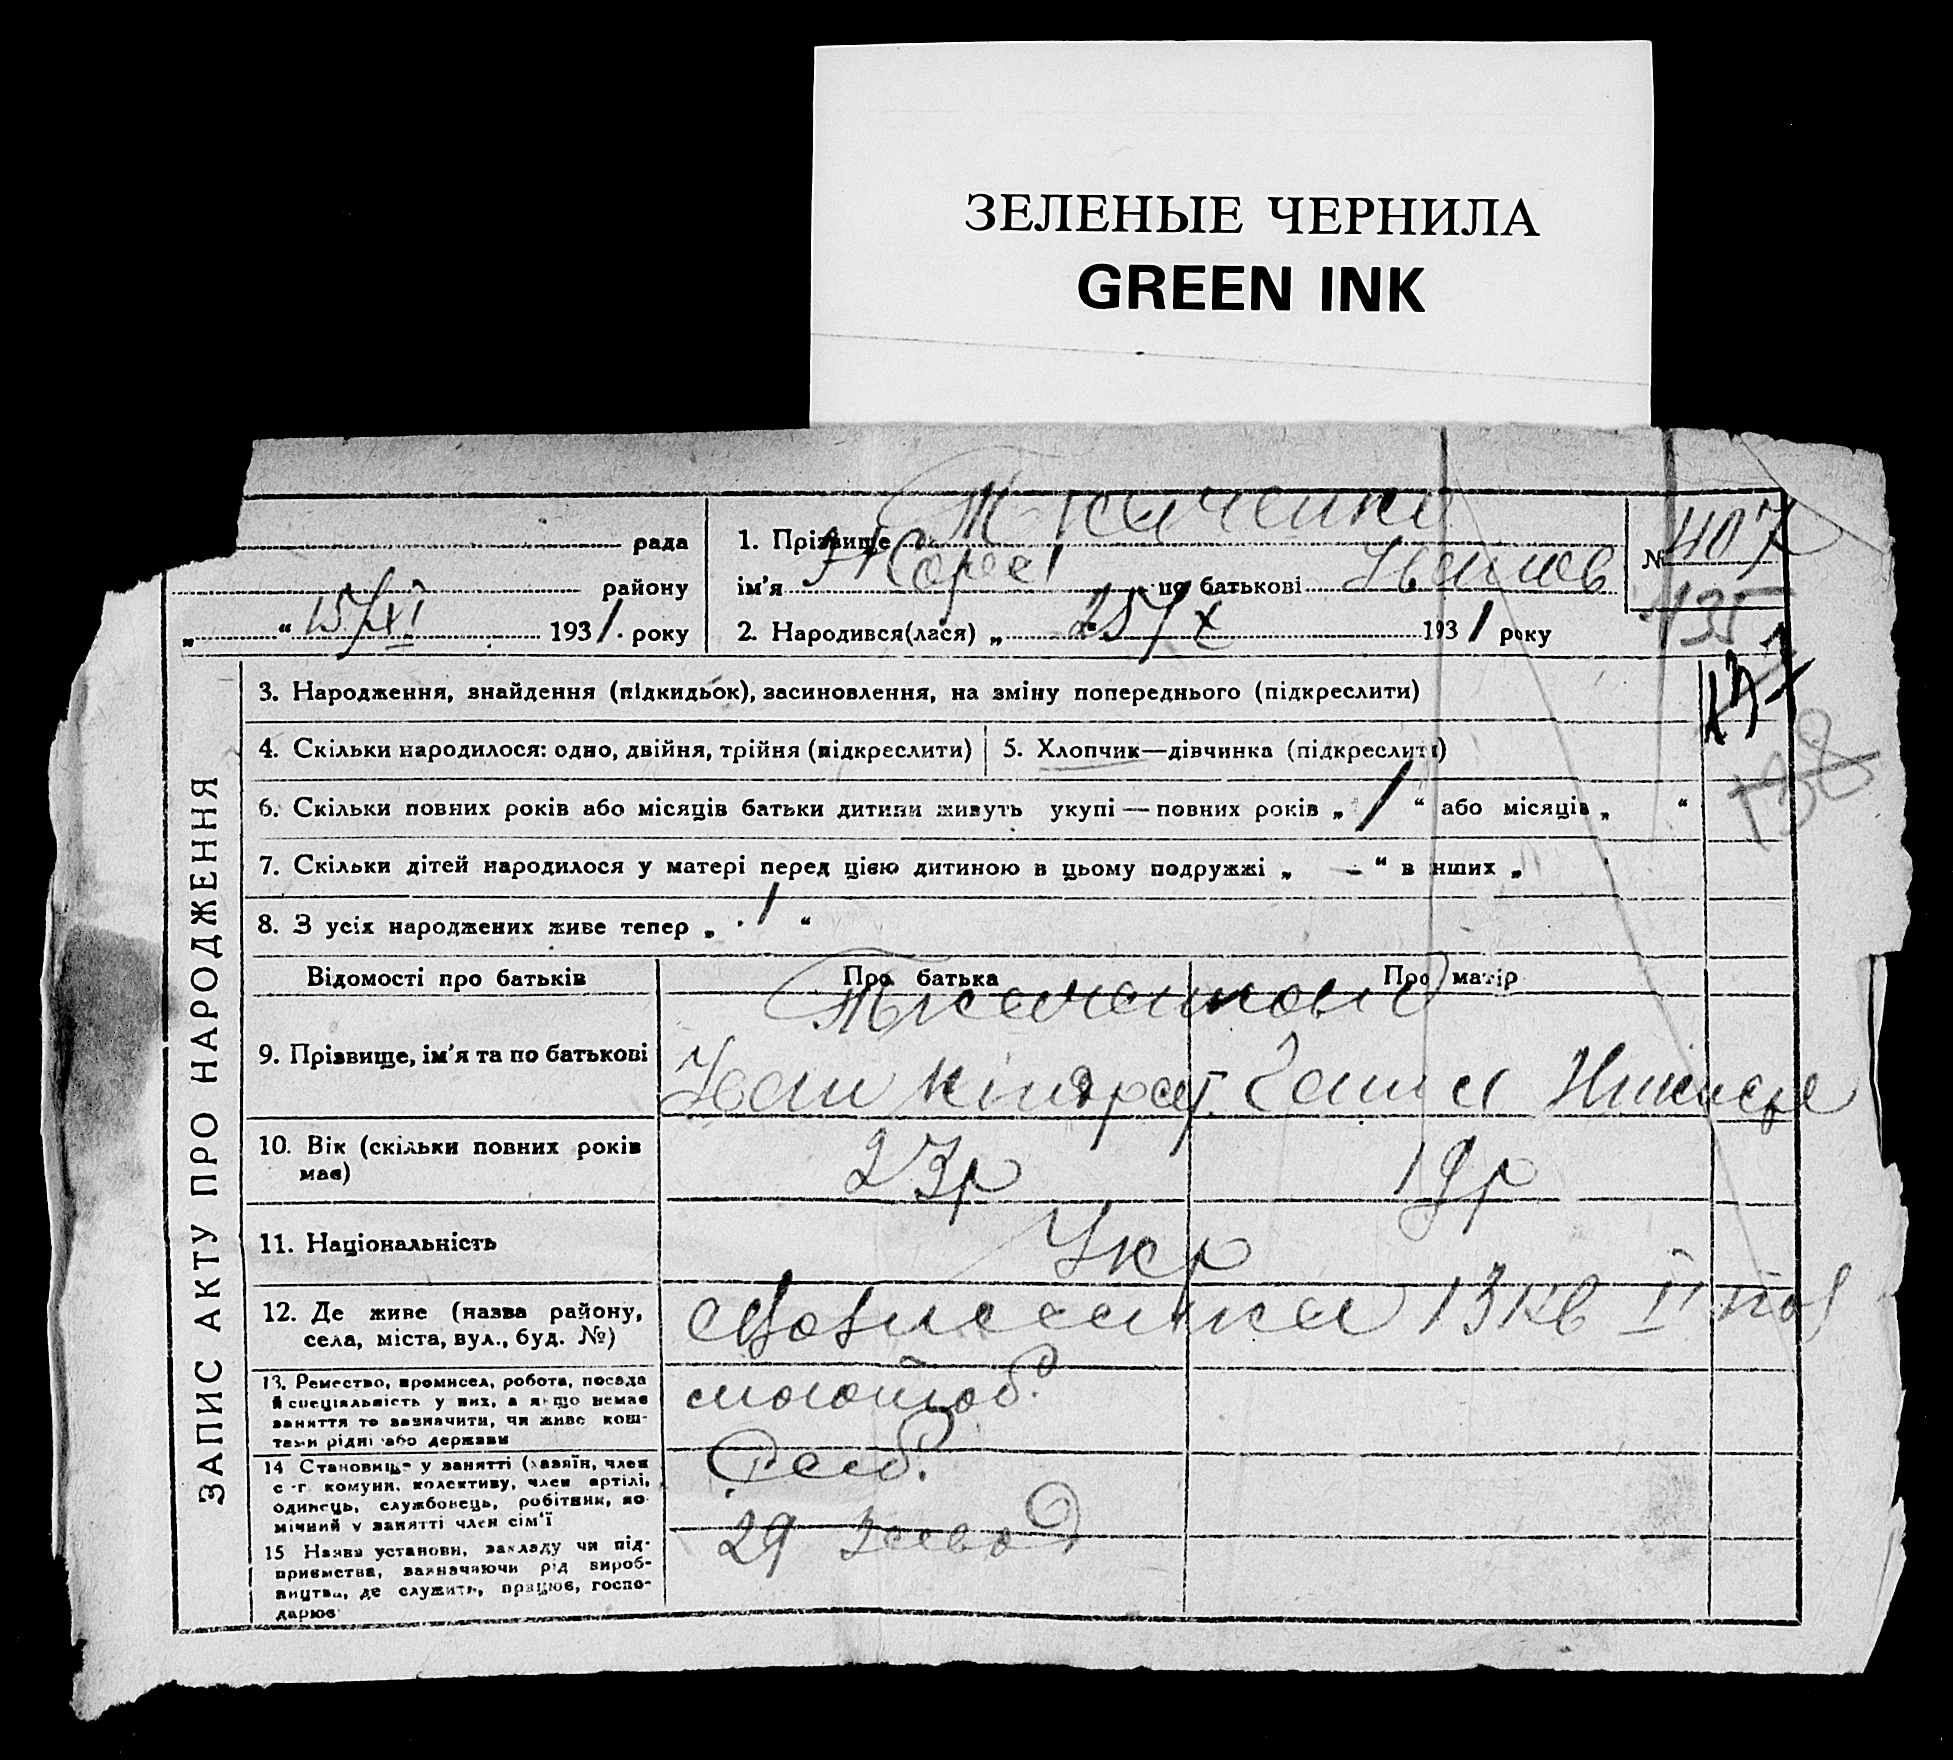 ЗЕЛЕНЫЕ ЧЕРНИЛА
GREEN INK
рада
району
„ “ 15/XI 1931 . року
1. Прізвище Ткаченко
ім'я Жорж по батькові Іванов
2. Народився(лася) „ 25/X 1931 року
№ 407
135
137
138
ЗАПИС АКТУ ПРО НАРОДЖЕННЯ
3. Народження, знайдення (підкидьок), засиновлення, на зміну попереднього (підкреслити)
4. Скільки народилося: одно, двійня, трійня (підкреслити)
5. Хлопчик—дівчинка (підкреслити)
6. Скільки повних років або місяців батьки дитини живуть укупі — повних років „ 1 “ або місяців „ “
7. Скільки дітей народилося у матері перед цією дитиною в цьому подружжі „ — “ в нших „
8. З усіх народжених живе тепер „ 1 “
Відомості про батьків
Про батька
Про матір
9. Прізвище, ім'я та по батькові
Ткаченкови
Іван Кіндрат.
Ганна
10. Вік (скільки повних років має)
23р
19р
11. Національність
Укр
12. Де живе (назва району,
села, міста, вул., буд. №)
13 кв II
13. Ремество, промисел, робота, посада
й спеціяльність у них, а якщо немає
заняття то зазначити, чи живе кош-
тами рідні або держави
14 Становище у занятті (хазяїн, член
с-г. комуни, колективу, член артілі,
одинець, службовець, робітник, по-
мічний у занятті член сім'ї
Роб.
15 Назва установи, закладу чи під-
приємства, зазначаючи рід вироб-
ництва, де служить, працює, госпо-
дарює
29 завод